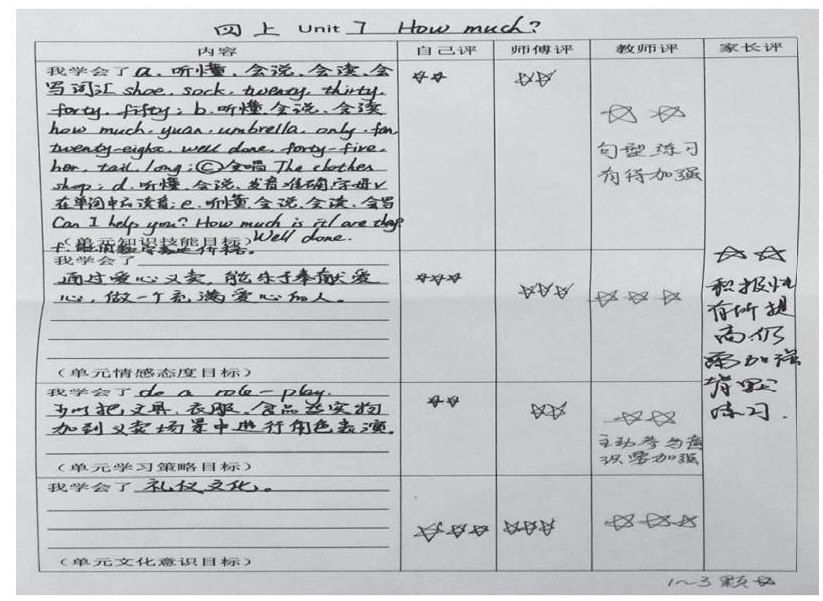 四上 Unit 7 How much?
内容 自己评 师傅评 教师评 家长评
我学会了 a. 听懂、会说、会读、会
写词汇 shoe, sock, twenty, thirty,
forty, fifty; b. 听懂、会说、会读
how much, yuan, umbrella, only, fan,
twenty-eight, well done, forty-five,
her, tail, long; ⓒ会唱 The clothes
shop; d. 听懂、会说、发音准确字母v
在单词中的读音; e. 听懂、会说、会读、会写
Can I help you? How much is it/are they?
Well done.
(单元知识技能目标)
☆☆
☆☆
☆ ☆
句型练习
有待加强
我学会了
通过爱心义卖,能乐于奉献爱
心,做一个充满爱心的人。
(单元情感态度目标)
☆☆☆
☆☆☆
☆ ☆ ☆
我学会了 do a role-play.
可以把文具、衣服、食品等实物
加到义卖场景中进行角色表演。
(单元学习策略目标)
☆☆
☆☆
☆☆
主动参与意
识要加强
我学会了 礼仪文化。
(单元文化意识目标)
☆☆☆
☆☆☆
☆☆☆
☆ ☆
积极性
有所提
高仍
需加强
背诵
练习.
1~3颗☆